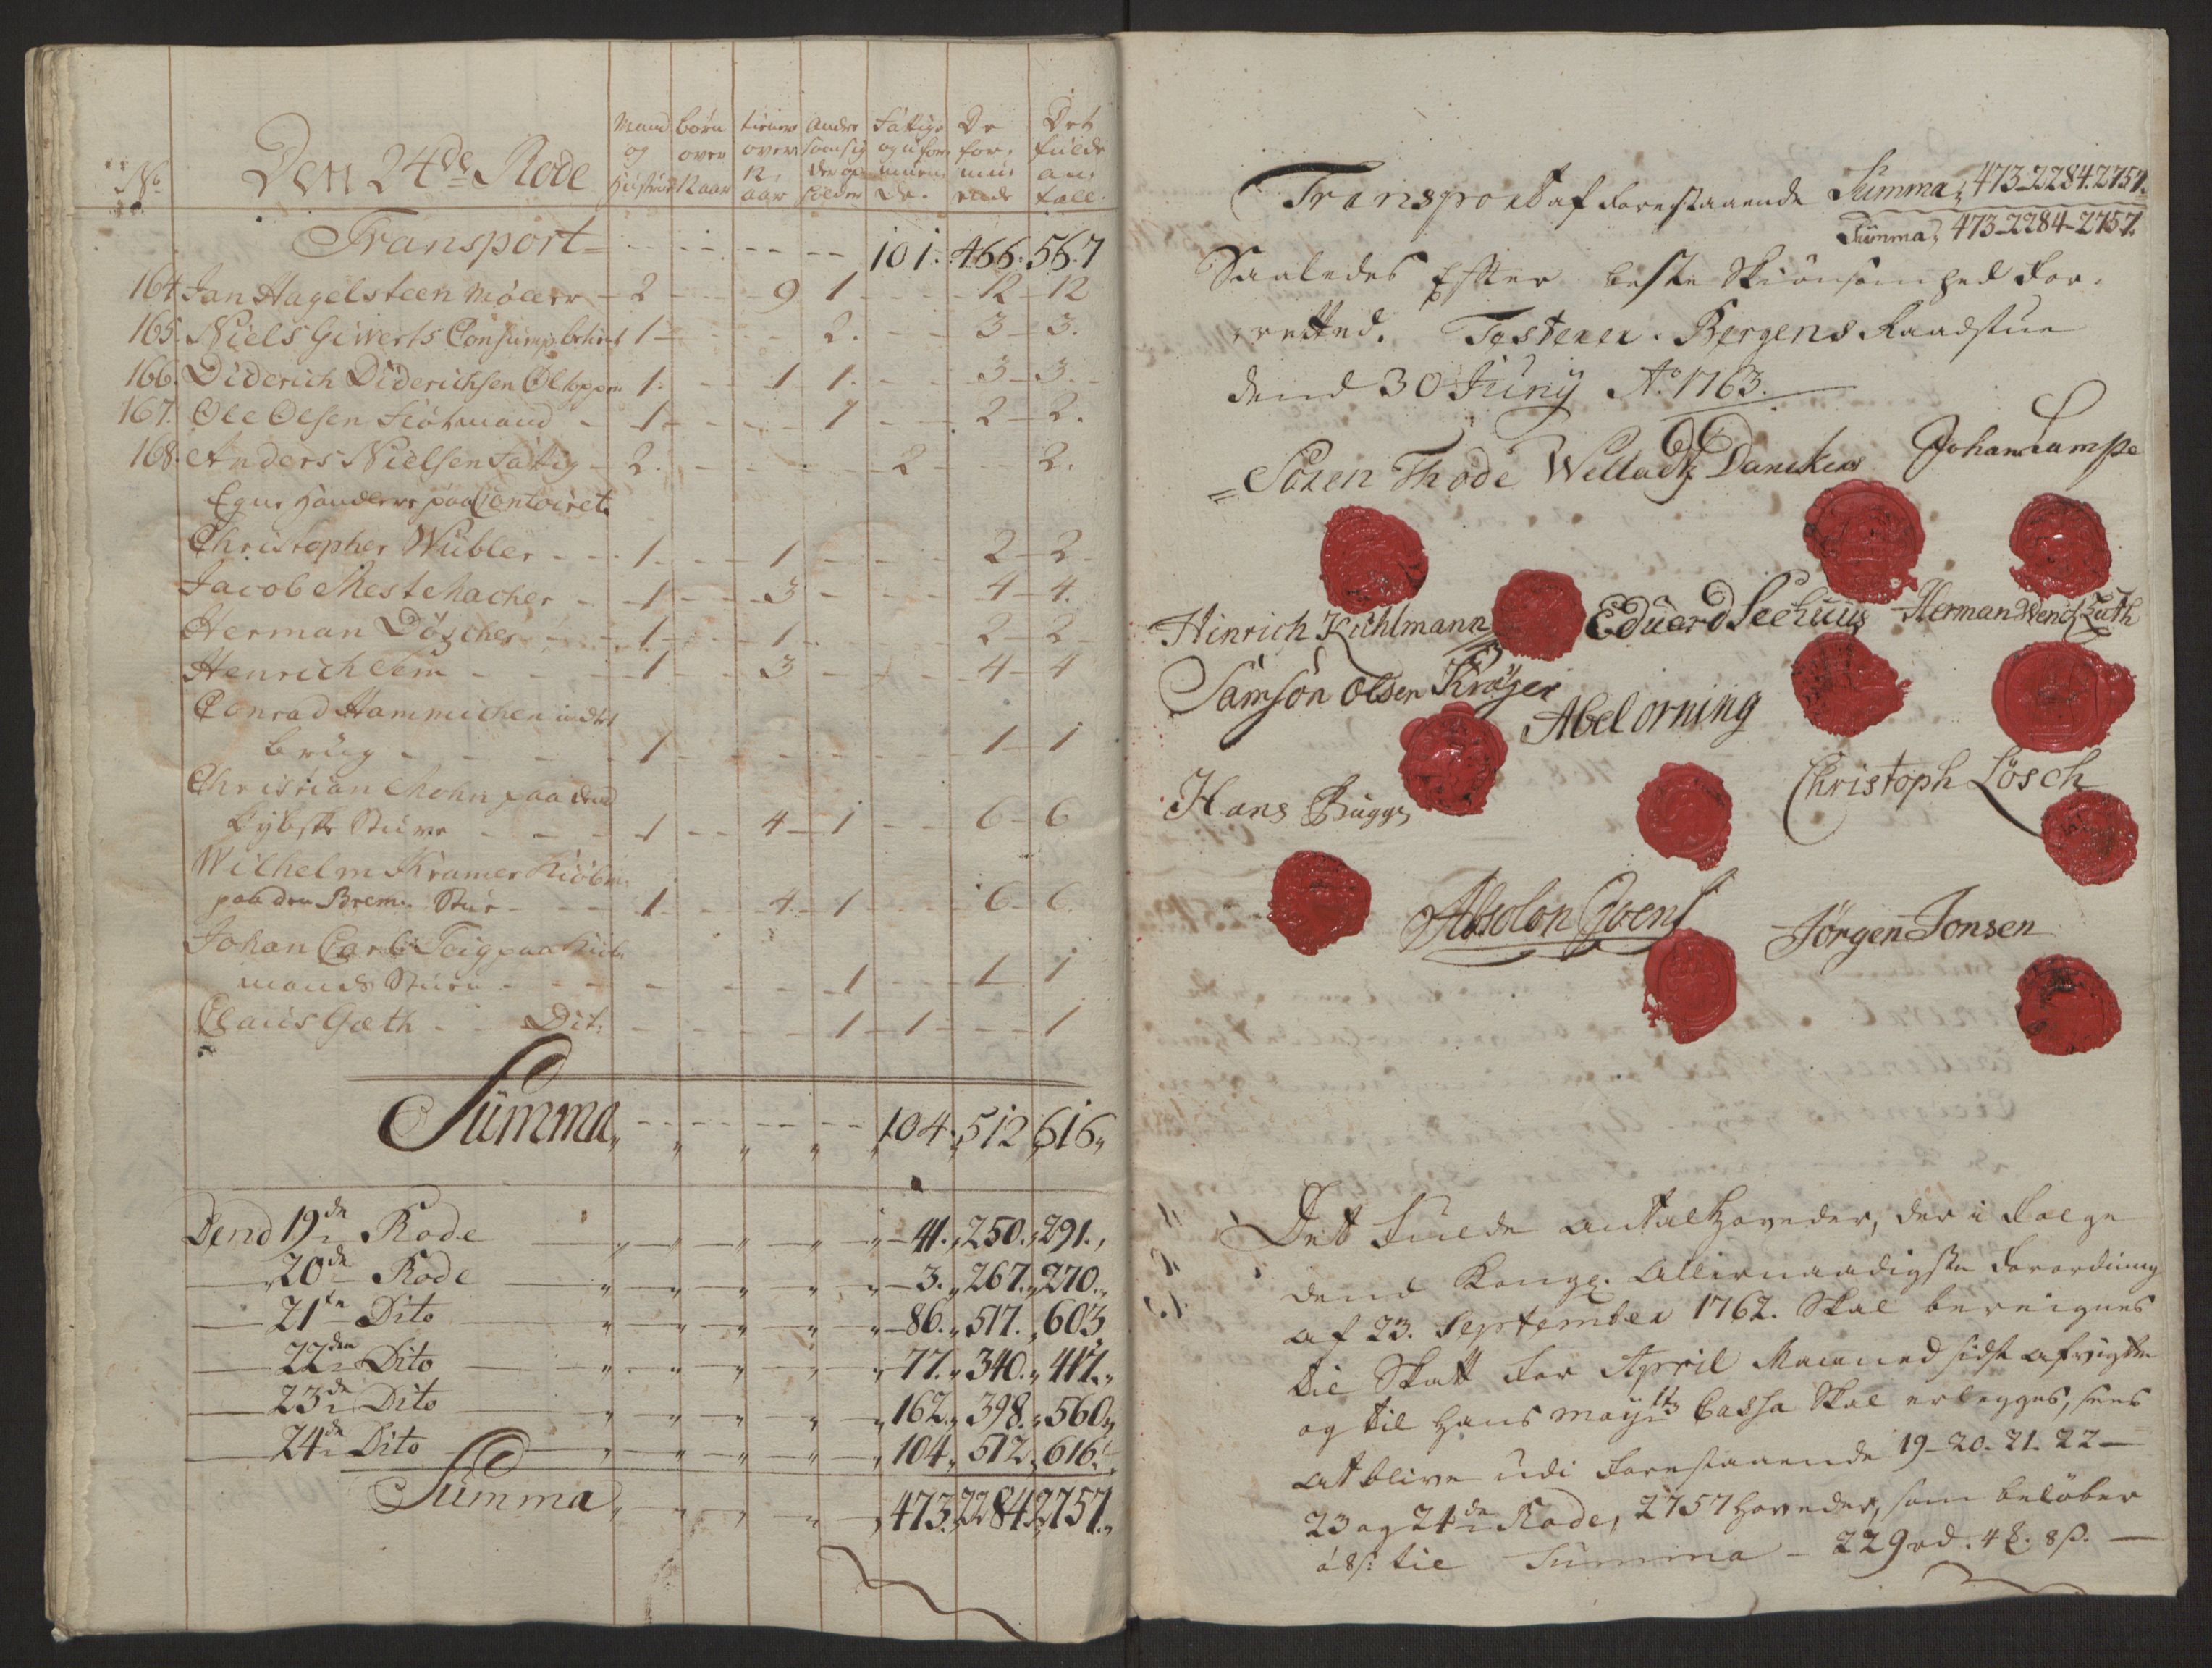 No. Den 24de Rode
Mand og Hustrue | börn over 12 aar | tiener over 12 aar | Andre som sig der op holder | Fattige og uformuende | De formuende | Det fulde antall
Transport - - - - 101. 466. 567
164 Jan Hagelsteen Möller - 2 - - 9 1 - - 12 - 12
165. Niels Giwerts Consumpbetient 1 - - - 2. - - 3 - 3.
166. Diderich Diderichsen Öltapper 1. - - 1 1. - - 3 - 3.
167. Ole Olsen Slötmand - 1 - - - 1 - - 2 - 2.
168. Anders Nielsen fattig - 2. - - - - 2 - - 2.
Egne Handlere paa Contoiret.
Christopher Wubler - - 1 - - 1 - - - 2 - 2
Jacob Mestmacher - - 1 - - 3 - - - 4 - 4.
Herman Döscher - - 1 - - 1 - - - 2 - 2
Henrich Sem - - - 1 - - 3 - - - 4 - 4
Conrad Hammichen
brüg - - - - 1 - - - - - 1 - 1
Christian Mohn paa
Stuve - - - 1 - - 4 - 1 - - 6 - 6
Wilhelm Kramer Kiöbm:
paa den Brem: Stue - - - 1 - - 4 - 1 - - 6 - 6.
Johan Carl Foig paa
mands Stuen - - - - - - 1 - - 1 1
Claus Gæth - - Dit: - - - 1 - 1 - - 1
Summa - - - - 104. 512 616
Dend 19de Rode - 41. 250. 291.
20de Rode - 3. 267. 270.
21te Dito - 86. 517. 603
22den Dito - 77. 340. 417.
23de Dito - 162. 398. 560
24de Dito - 104. 512. 616
Summa 473. 2284. 2757.
Transport af forestaaende Summa 473-2284.2757.
Summa 473-2284-2757.
Saaledes Efter beste Skiönsomhed for-
retted. Testerer. Bergens Raadstue
dend 30 Juny Ao. 1763.
Sören Thode Welladtz Danckers Johan Lampe
Hinrich Kuhlmann Eduard Seehuus Herman Wenck Zuth
Samson Olsen Kröger Abel orning
Hans Bugge Christoph Lösch
Absolon Goens Jörgen Jonsen
Dett fulde antal Hoveder, der i Folge
dend Kongl. Allernaadigste forordning
af 23. September 1762. Skal bereignes
til Skatt for April Maaned sidst afvigte
og til Hans Mayts Cassa Skal erlegges, sees
att blive udi forestaaende 19-20.21.22-
23 og 24de Rode, 2757 hoveder, som belöber
á 8s: til Summa - 229rd. 4 . 8s. -